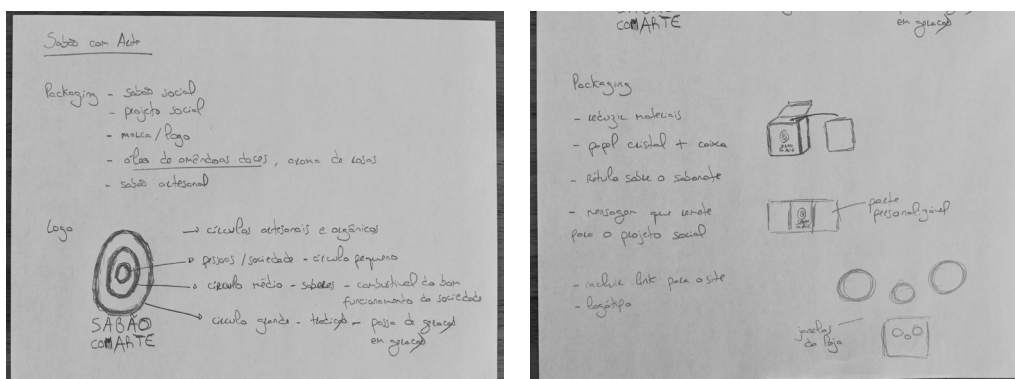 Sabão com Arte
Packaging - sabão social
- projeto social
- marca/logo
- óleo de amêndoas doces, aroma de rosas
- sabão artesanal
Logo
→ círculos artesanais e orgânicos
→ pessoas/sociedade - círculo pequeno
→ círculo médio - saberes - combustível do bom
funcionamento da sociedade
→ círculo grande - tradição - passa de geração
em geração
SABÃO
COMARTE
COMARTE
em geração
Packaging
- reduzir materiais
- papel cristal + caixa
- Rótulo sobre o sabonete
- mensagem que remete
para o projeto social
parte
personalizável
- incluir link para o site
- logótipo
janelas
da loja